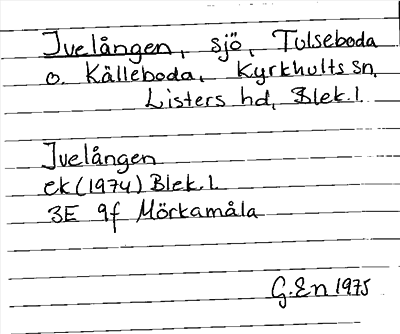 Ivelången, sjö, Tulseboda
o. Källeboda, Kyrkhults sn,
Listers hd, Blek. l.
Ivelången
ek (1974) Blek. l.
3E 9f Mörkamåla
G. En 1975